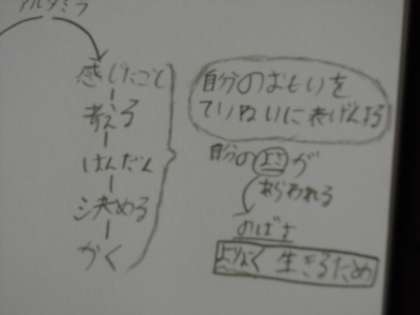 アルタミラ
感じたこと
考える
はんだん
決める
かく
自分のおもいを
ていねいに表げんする
自分のよさが
あらわれる
のばす
よりよく 生きるため